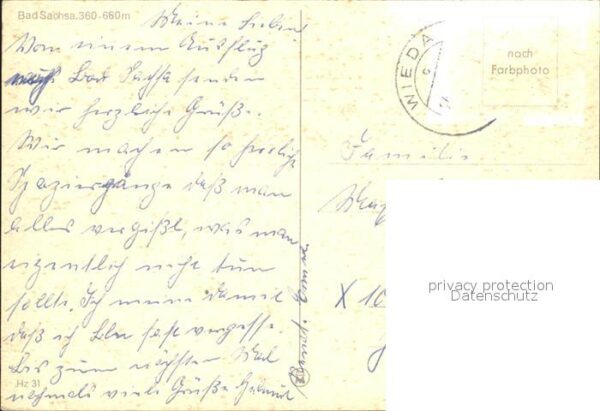 Bad Sachsa. 360-660m
Meine Lieben
Von einem Ausflug
nach Bad Sachsa senden
wir herzliche Grüße.
Wir machen so herrliche
Spaziergänge daß man
alles vergißt, was man
eigentlich nicht tun
sollte. Ich meine damit
daß ich fast vergesse.
Bis zum nächsten Mal
nochmals viele Grüße Helmut
Hz 31
WIEDA
nach
Farbphoto
Familie
X 10
privacy protection
Datenschutz